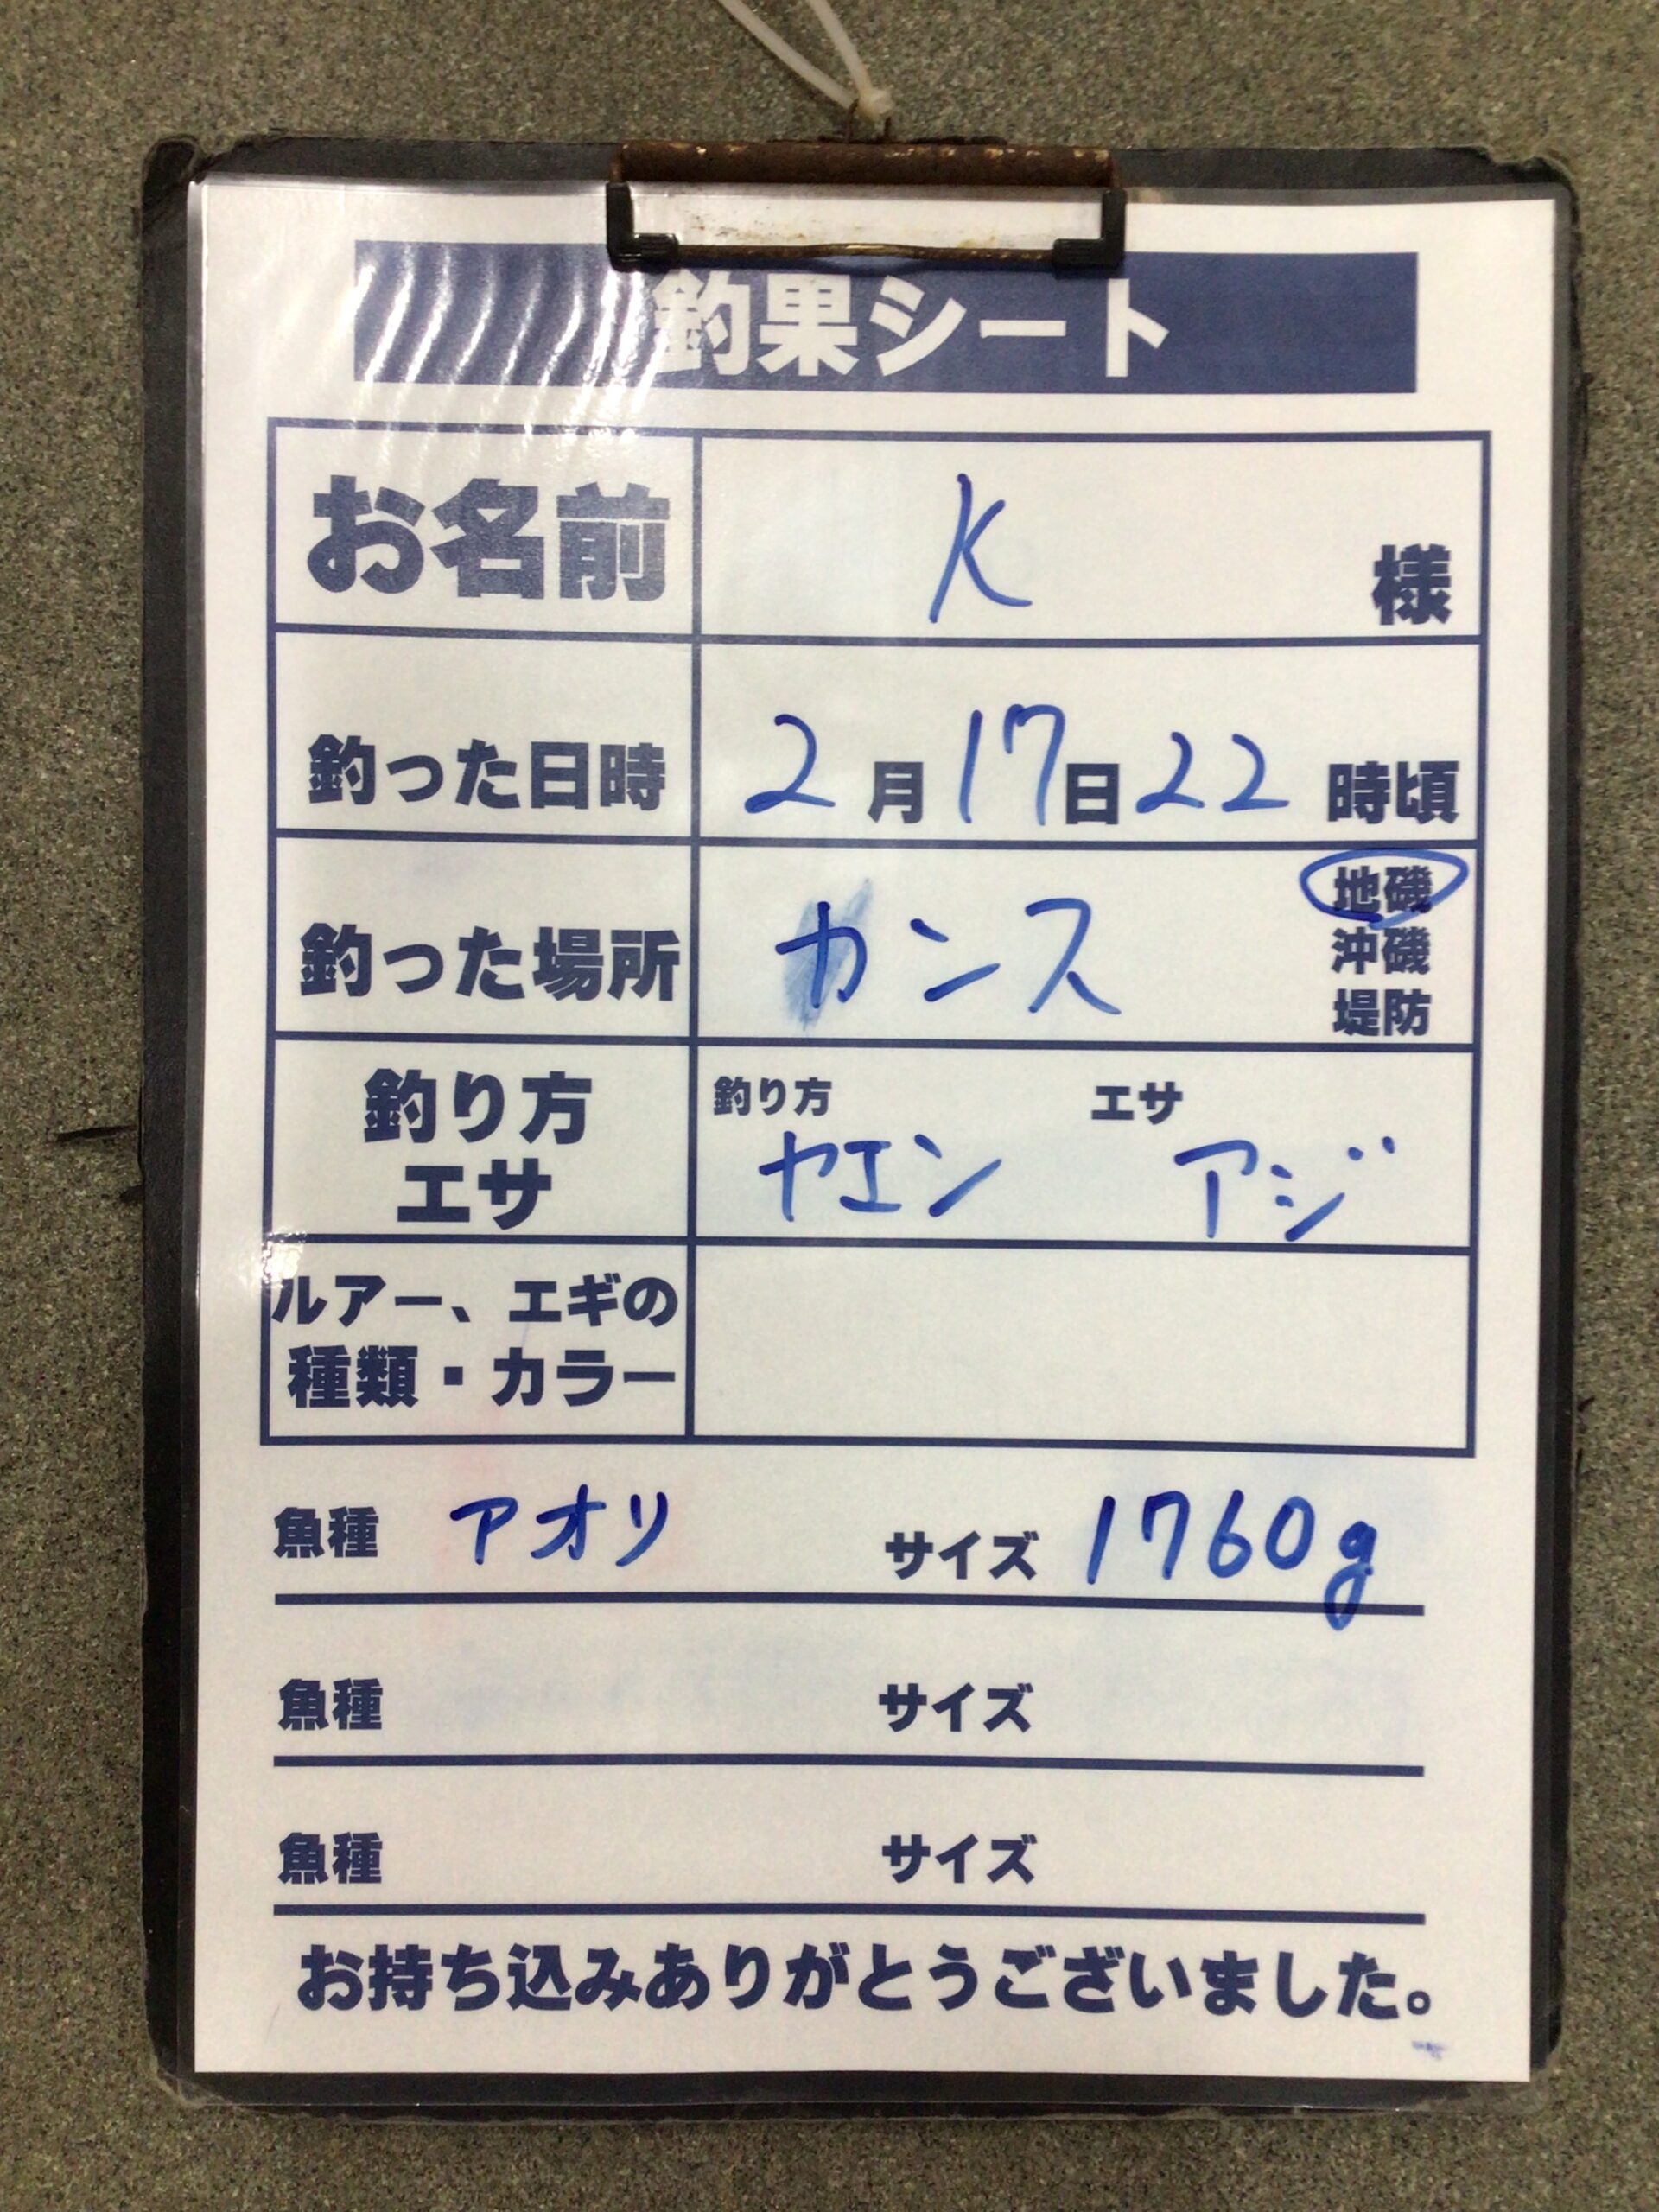 釣果シート
お名前 K 様
釣った日時 2月17日22時頃
釣った場所 カンス 地磯
沖磯
堤防
釣り方 エサ
釣り方 ヤエン エサ アジ
ルアー、エギの
種類・カラー
魚種 アオリ サイズ 1760g
魚種 サイズ
魚種 サイズ
お持ち込みありがとうございました。